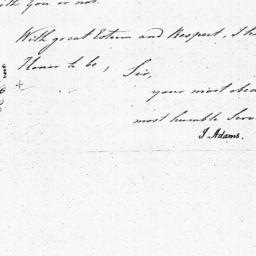 with you or not.
With great Esteem and Respect, I ha
Honor to be, Sir,
your most obed
most humble Serv
J. Adams.